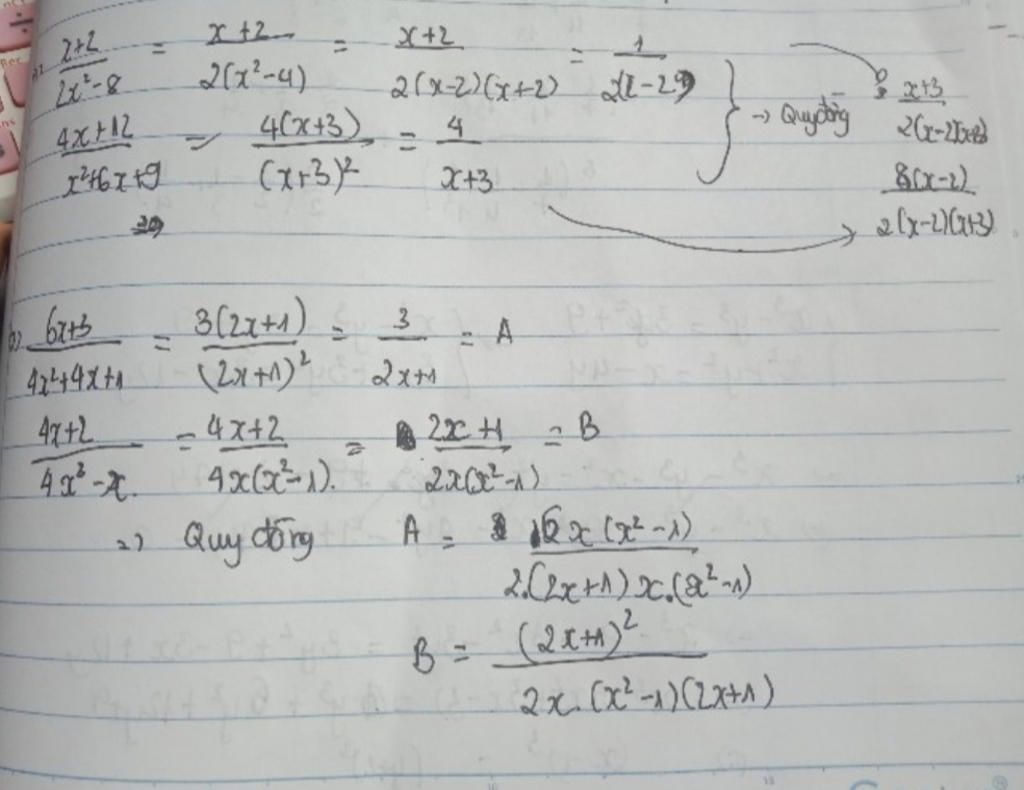 a) \frac{x+2}{2x^2-8} = \frac{x+2}{2(x^2-4)} = \frac{x+2}{2(x-2)(x+2)} = \frac{1}{2(x-2)}
\frac{4x+12}{x^2+6x+9} = \frac{4(x+3)}{(x+3)^2} = \frac{4}{x+3}
→ Quy đồng
\frac{x+3}{2(x-2)(x+3)}
\frac{8(x-2)}{2(x-2)(x+3)}
b) \frac{6x+3}{4x^2+4x+1} = \frac{3(2x+1)}{(2x+1)^2} = \frac{3}{2x+1} = A
\frac{4x+2}{4x^3-x} = \frac{4x+2}{4x(x^2-1)} = \frac{2x+1}{2x(x^2-1)} = B
=> Quy đồng A = \frac{6x(x^2-1)}{2.(2x+1)x.(x^2-1)}
B = \frac{(2x+1)^2}{2x.(x^2-1)(2x+1)}